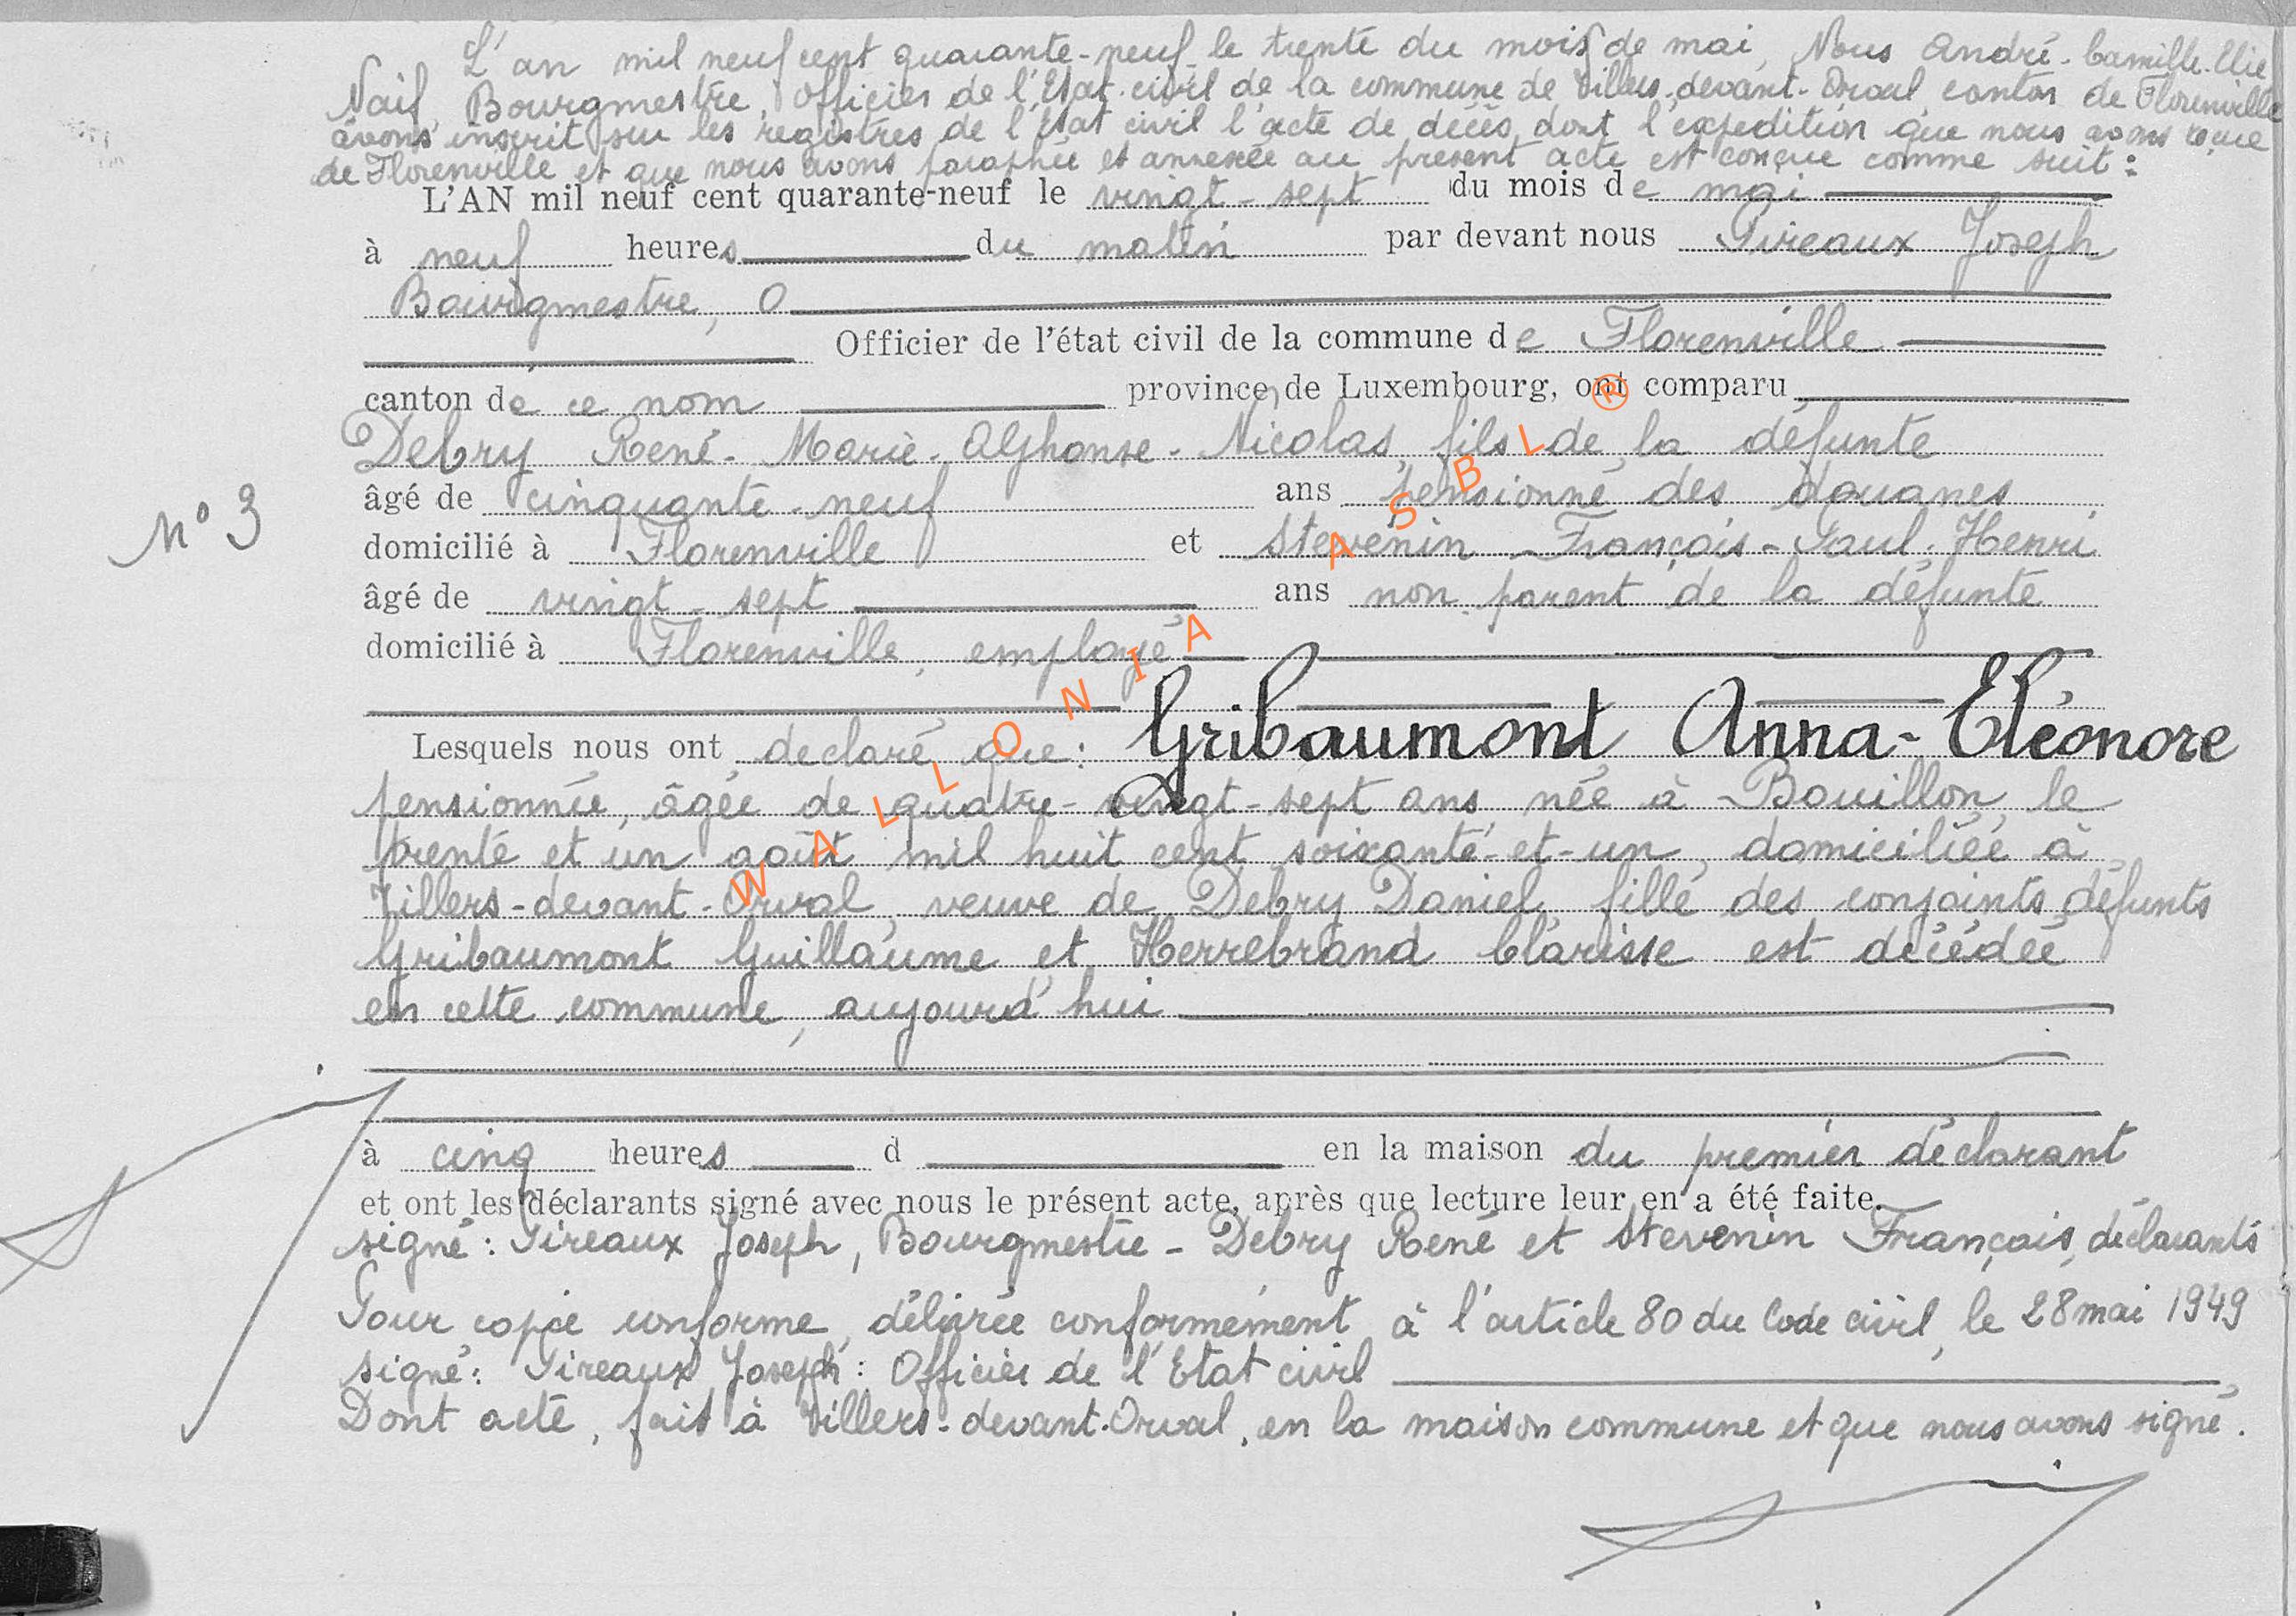 L'an mil neuf cent quarante-neuf le trente du mois de mai, Nous André-Camille-Elie
Naif, Bourgmestre, Officier de l'Etat-civil de la commune de Villers-devant-Orval canton de Florenville
avons inscrit sur les registres de l'Etat civil l'acte de décès dont l'expédition que nous avons reçue
de Florenville et que nous avons paraphée et annexée au présent acte est conçue comme suit :
L'AN mil neuf cent quarante-neuf le vingt-sept du mois de mai
à neuf heures du matin par devant nous Pireaux Joseph
Bourgmestre, O
Officier de l'état civil de la commune de Florenville
canton de ce nom province de Luxembourg, ont comparu
Debry René-Marie-Alphonse-Nicolas, fils de la défunte
N° 3
âgé de cinquante-neuf ans pensionné des douanes
domicilié à Florenville et Stevenin François-Paul-Henri
âgé de vingt-sept ans non parent de la défunte
domicilié à Florenville, employé
Lesquels nous ont declaré que : Gribaumont Anna-Eléonore
pensionnée, âgée de quatre-vingt-sept ans, née à Bouillon, le
trente et un août mil huit cent soixante-et-un, domiciliée à
Villers-devant-Orval, veuve de Debry Daniel, fille des conjoints défunts
Gribaumont Guillaume et Herrebrand Clarisse est décédée
en cette commune, aujourd'hui
à cinq heures d en la maison du premier déclarant
et ont les déclarants signé avec nous le présent acte, après que lecture leur en a été faite.
signé : Pireaux Joseph, Bourgmestre - Debry René et Stevenin François, déclarants
Pour copie conforme, délivrée conformément à l'article 80 du Code civil, le 28 mai 1949
signé : Pireaux Joseph : Officier de l'Etat civil
Dont acte, fait à Villers-devant-Orval, en la maison commune et que nous avons signé.
WALLONIA ASBL ®